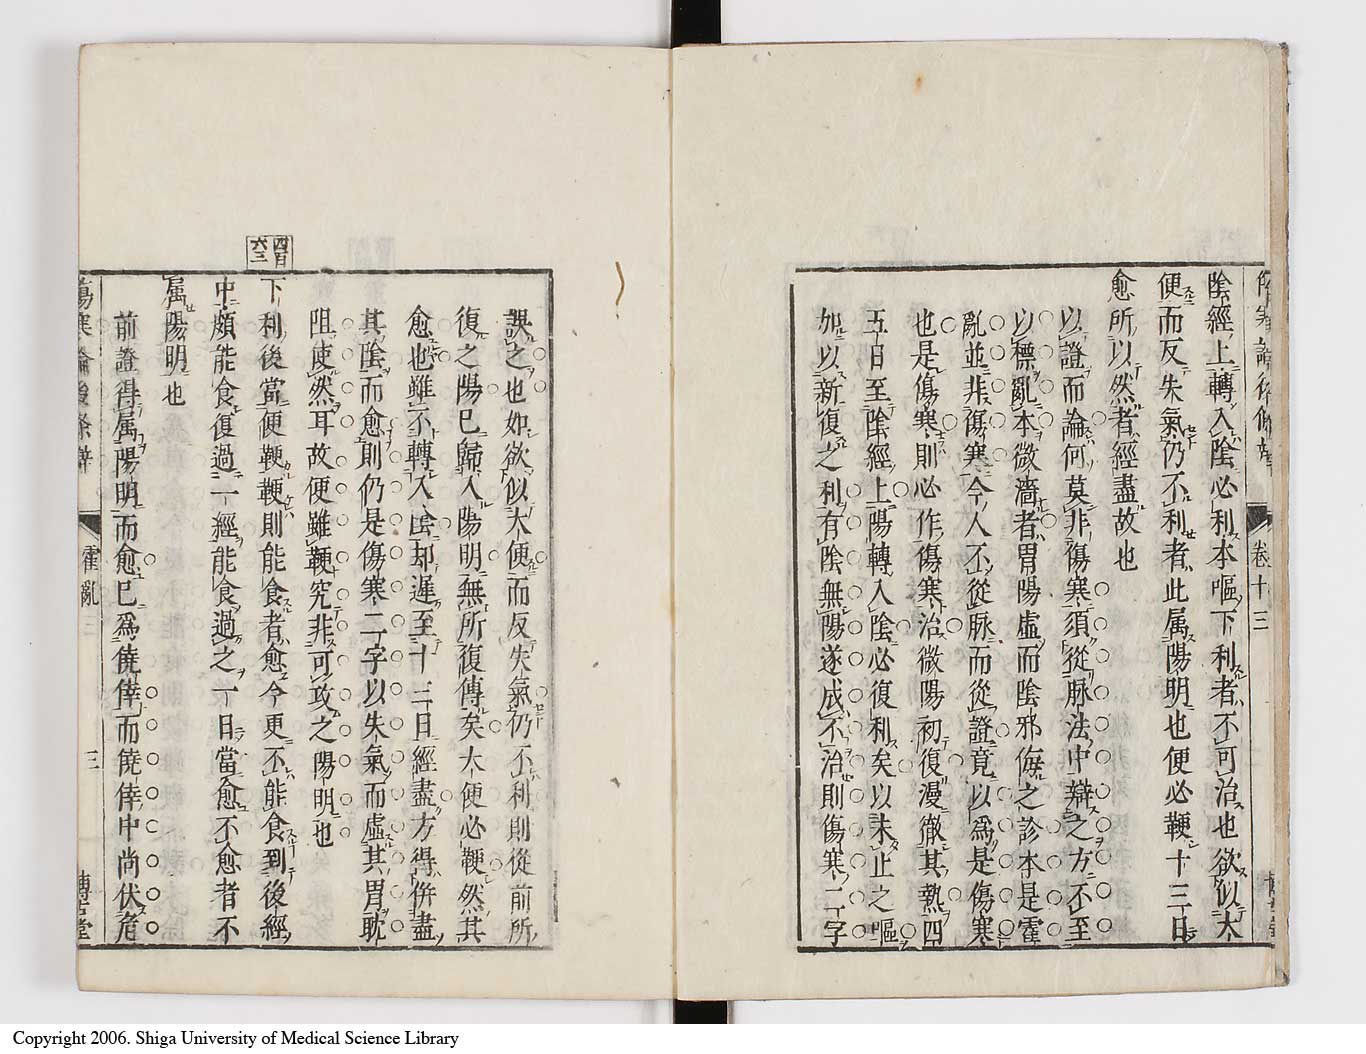 卷十三
陰經上轉入陰必利本嘔下利者不可治也欲似大
便而反失氣仍不利者此属陽明也便必鞕十三日
愈所以然者經盡故也
以證而論何莫非傷寒須從脉法中辯之方不至
以標亂本微濇者胃陽虛而陰邪侮之診本是霍
亂並非傷寒今人不從脉而從證竟以爲是傷寒
也是傷寒則必作傷寒治微陽初復漫徹其熱四
五日至陰經上陽轉入陰必復利矣以未止之嘔
加以新復之利有陰無陽遂成不治則傷寒二字
誤之也如欲似大便而反失氣仍不利則從前所
復之陽已歸入陽明無所復傳矣大便必鞕然其
愈也雖不轉入陰却遲至十三日經盡方得併盡
其陰而愈則仍是傷寒二字以失氣而虛其胃耽
阻使然耳故便雖鞕究非可攻之陽明也
四百六三
下利後當便鞕鞕則能食者愈今更不能食到後經
中頗能食復過一經能食過之一日當愈不愈者不
属陽明也
前證得属陽明而愈已爲僥倖而僥倖中尚伏危
傷寒論後条辯 霍亂三 三 博古堂